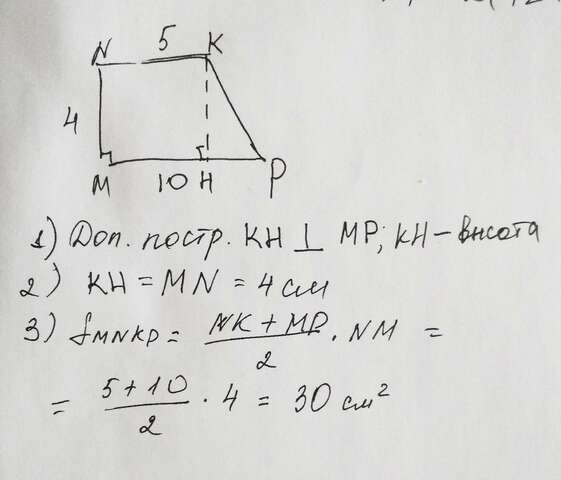 5
N K
4
M 10 H P
1) Доп. постр. KH ⊥ MP; KH – высота
2) KH = MN = 4 см
3) SMNKP = NK + MP / 2 · NM =
= 5 + 10 / 2 · 4 = 30 см²